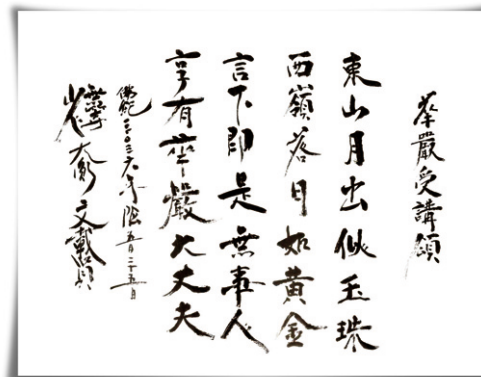 華嚴受講頌
東山月出似玉珠
西嶺落日如黃金
言下即是無事人
享有華嚴大丈夫
佛紀三〇三六年陰五月二十五日
文載賢